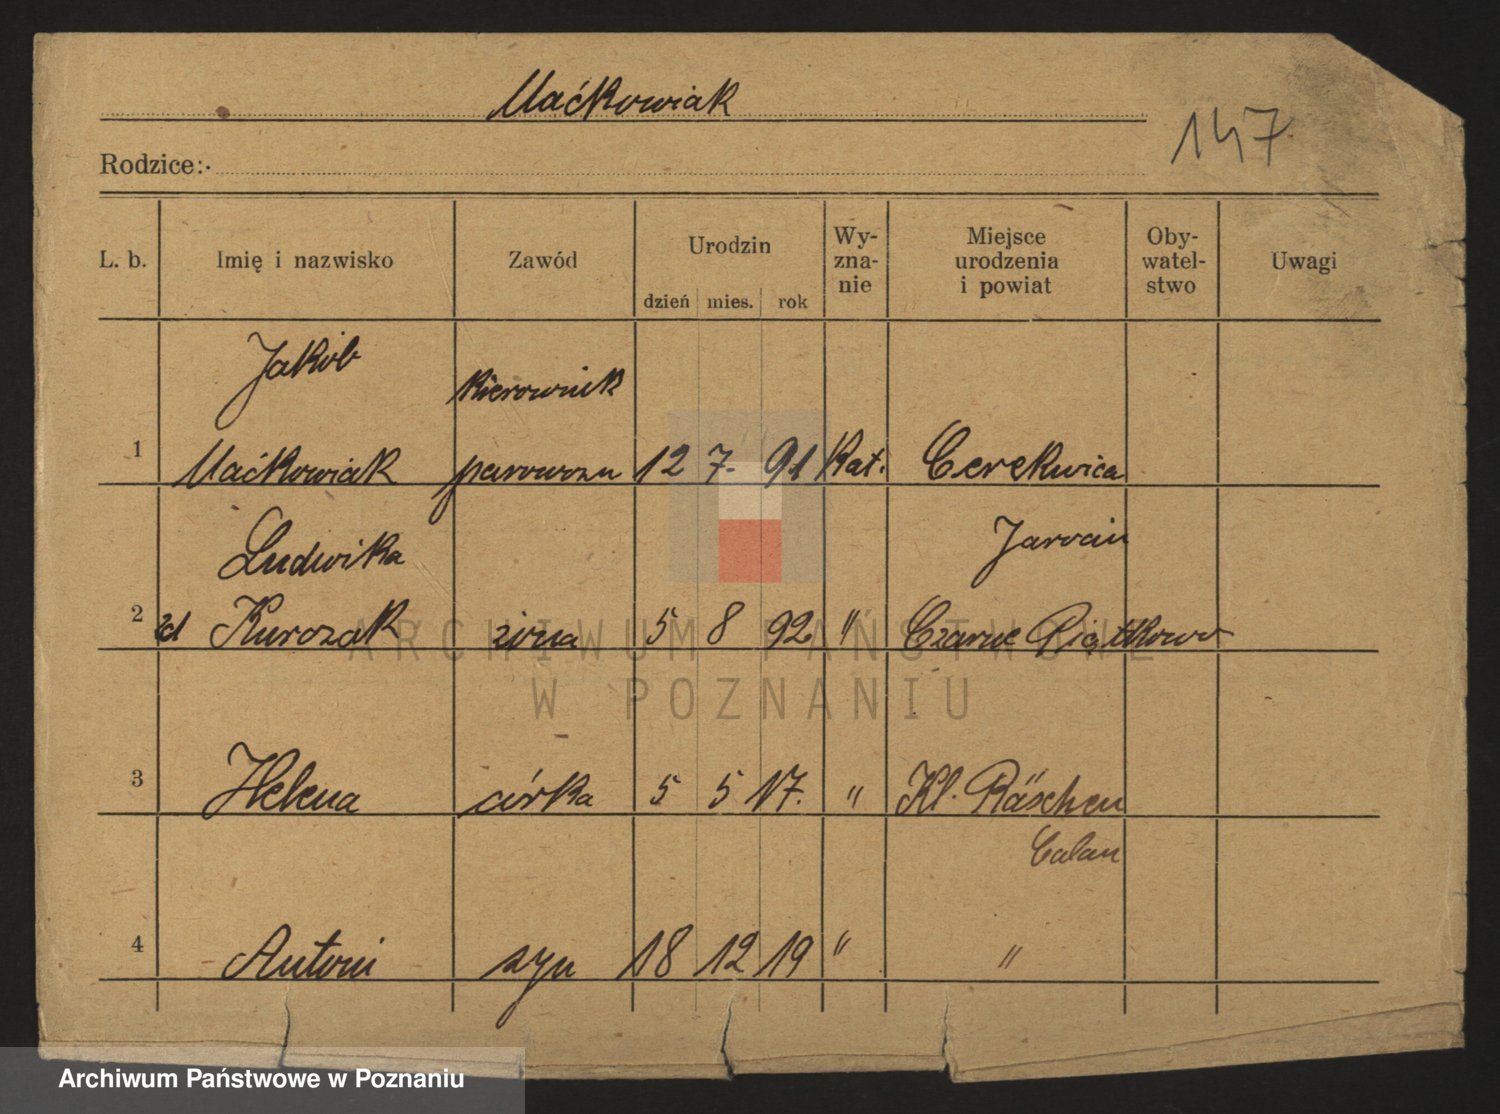 Maćkowiak
147
Rodzice:
L. b. Imię i nazwisko Zawód Urodzin dzień mies. rok Wy-zna-nie Miejsce urodzenia i powiat Oby-watel-stwo Uwagi
Jakób kierownik
1 Maćkowiak parowozu 12 7. 91 Kat. Cerekwica
Ludwika Jarocin
2 zd Kurczak żona 5 8 92 " Czarne Piątkowo
3 Helena córka 5 5 17. " Kl. Räschen
Calau
4 Antoni syn 18 12 19 " "
ARCHIWUM PAŃSTWOWE
W POZNANIU
Archiwum Państwowe w Poznaniu